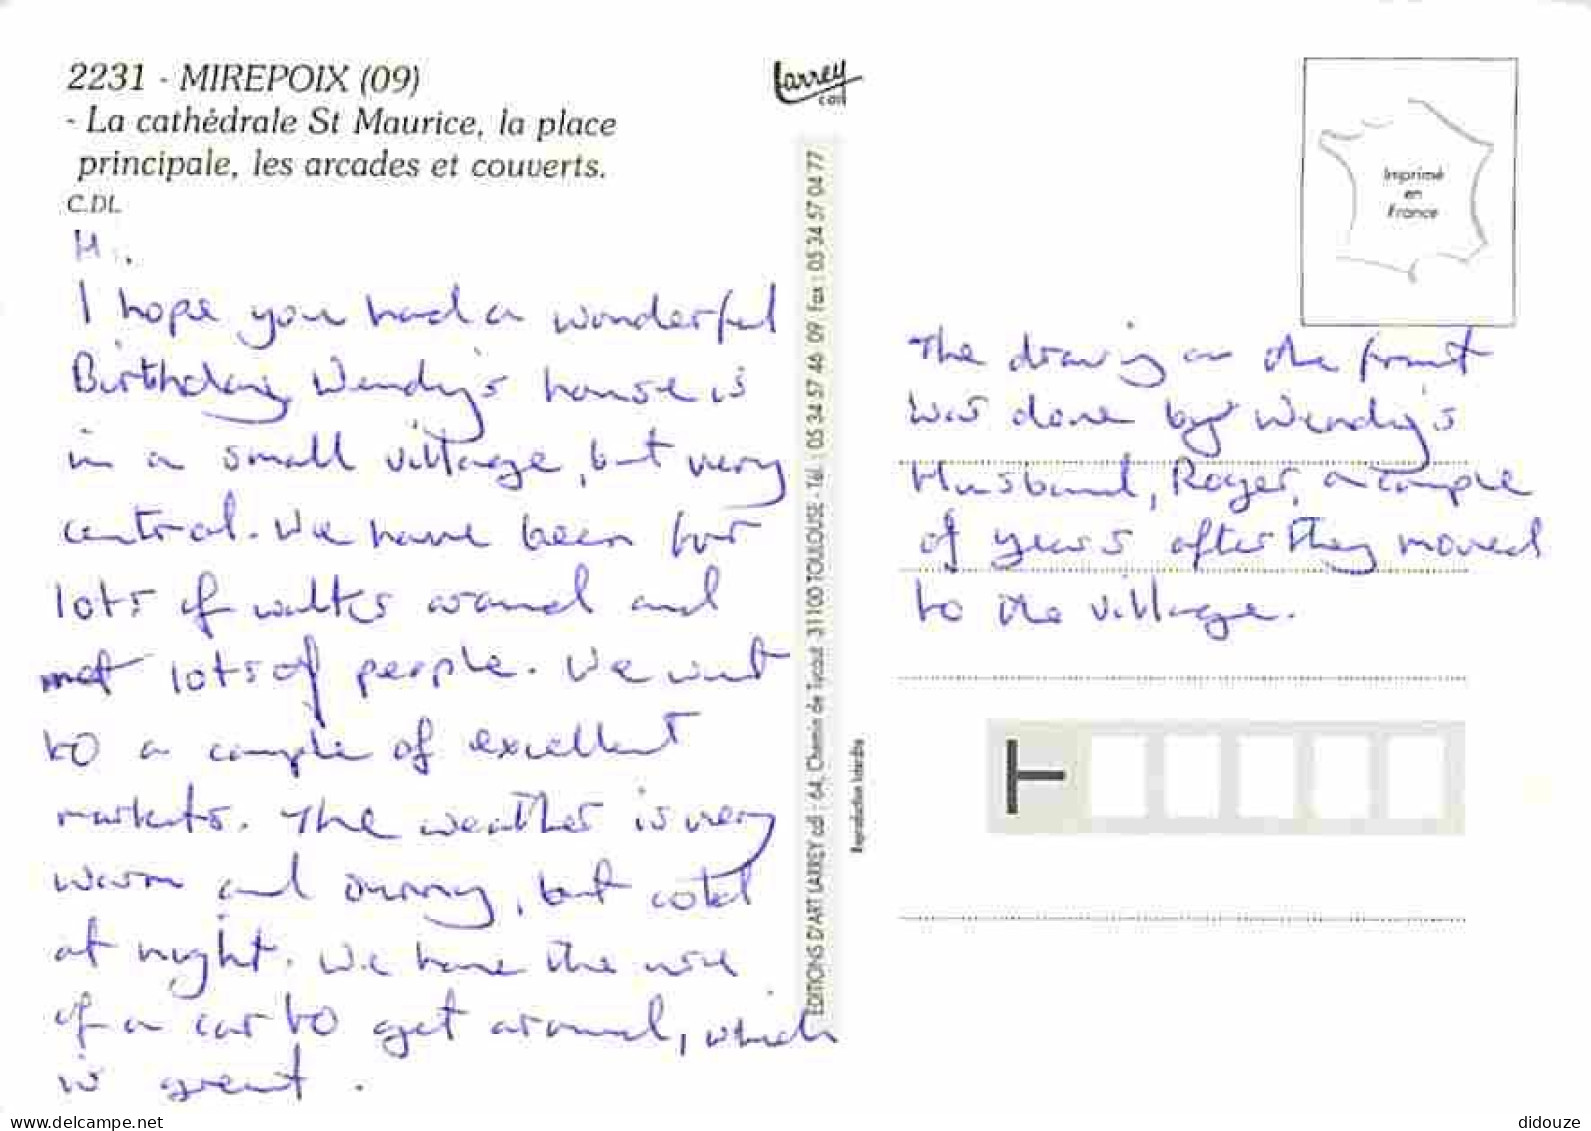 2231 - MIREPOIX (09)
- La cathédrale St Maurice, la place
principale, les arcades et couverts.
C.DL
Hi,
I hope you had a wonderful
Birthday, Wendy's house is
in a small village, but very
central. We have been for
lots of walks around and
met lots of people. We went
to a couple of excellent
markets. The weather is very
warm and sunny, but cold
at night. We have the use
of a car to get around, which
is great.
Larrey
EDITIONS D'ART LARREY cdl - 64, Chemin de Tucaut 31100 TOULOUSE - Tél. : 05 34 57 46 09 Fax : 05 34 57 04 77
Reproduction Interdite
Imprimé
en
France
The drawing on the front
was done by Wendy's
Husband, Roger, a couple
of years after they moved
to the village.
www.delcampe.net
didouze